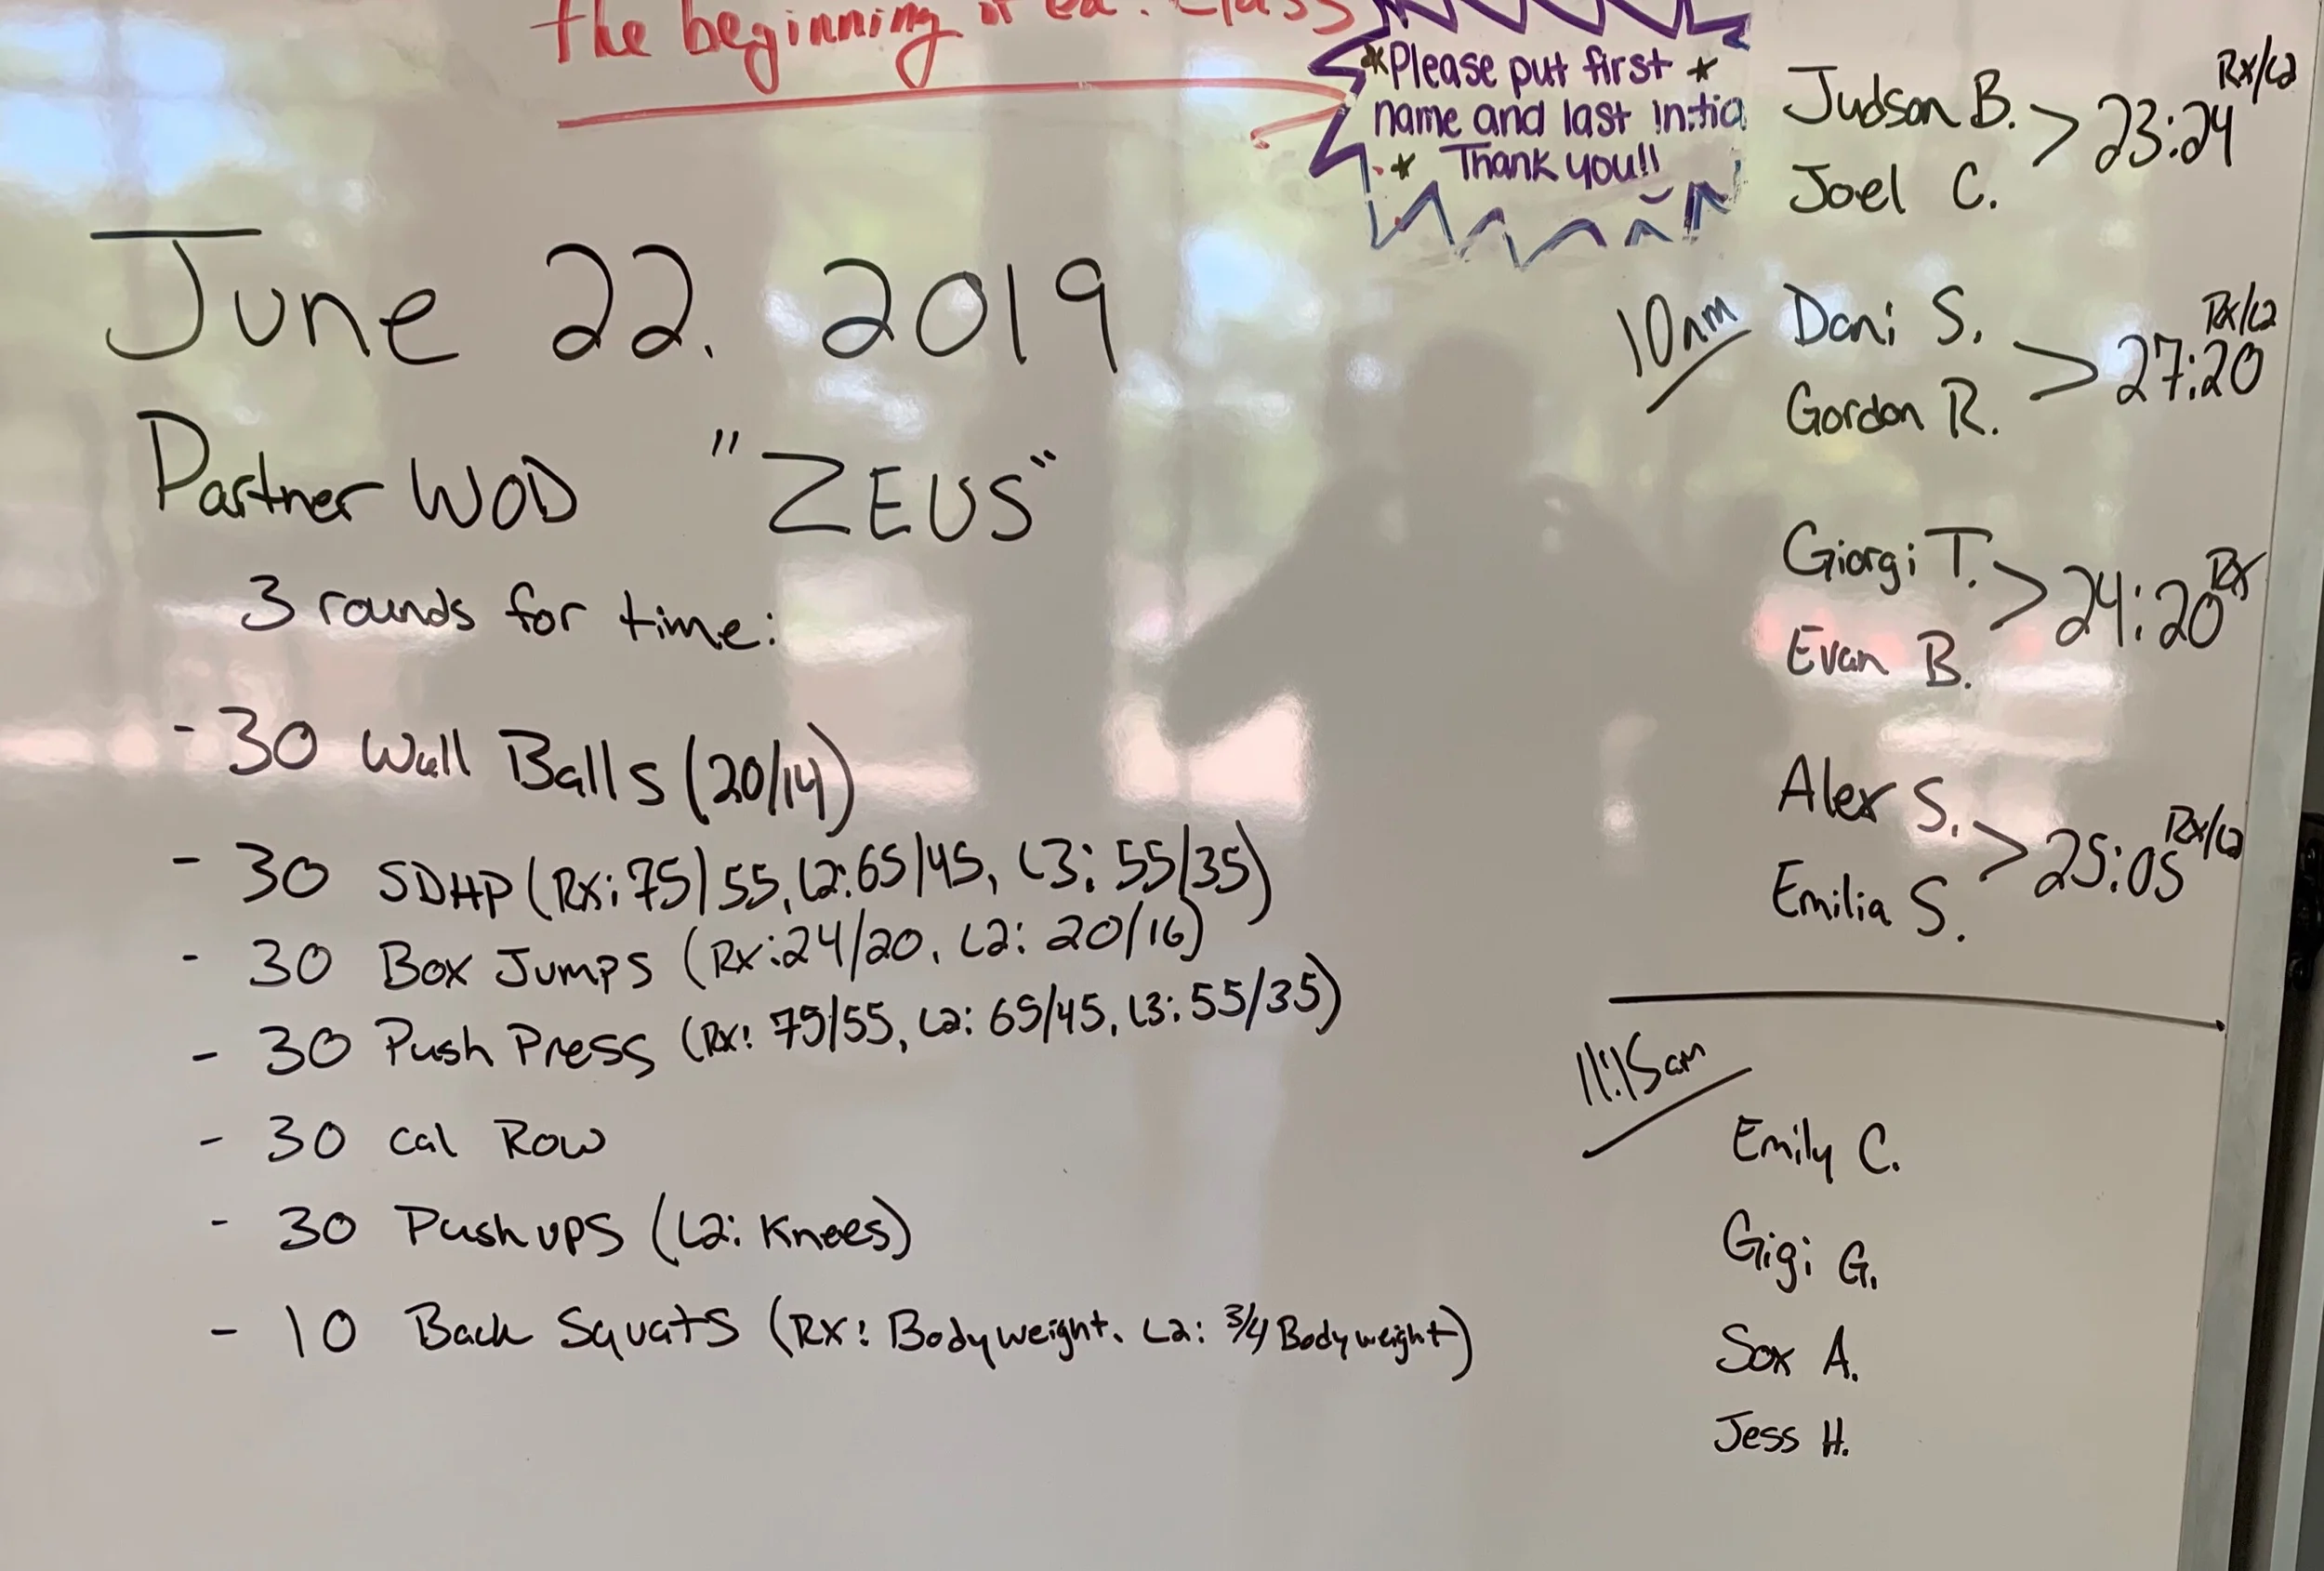 the beginning of ea. class
*Please put first *
name and last initia
* Thank you!!
June 22. 2019
Partner WOD "ZEUS"
3 rounds for time:
- 30 Wall Balls (20/14)
- 30 SDHP (Rx: 75/55, L2: 65/45, L3: 55/35)
- 30 Box Jumps (Rx: 24/20, L2: 20/16)
- 30 Push Press (Rx: 75/55, L2: 65/45, L3: 55/35)
- 30 Cal Row
- 30 Push ups (L2: Knees)
- 10 Back Squats (Rx: Bodyweight, L2: 3/4 Bodyweight)
Judson B. > 23:24 Rx/L2
Joel C.
10am
Dani S. > 27:20 Rx/L2
Gordon R.
Giorgi T. > 24:20 Rx
Evan B.
Alex S. > 25:05 Rx/L2
Emilia S.
11:15am
Emily C.
Gigi G.
Sox A.
Jess H.